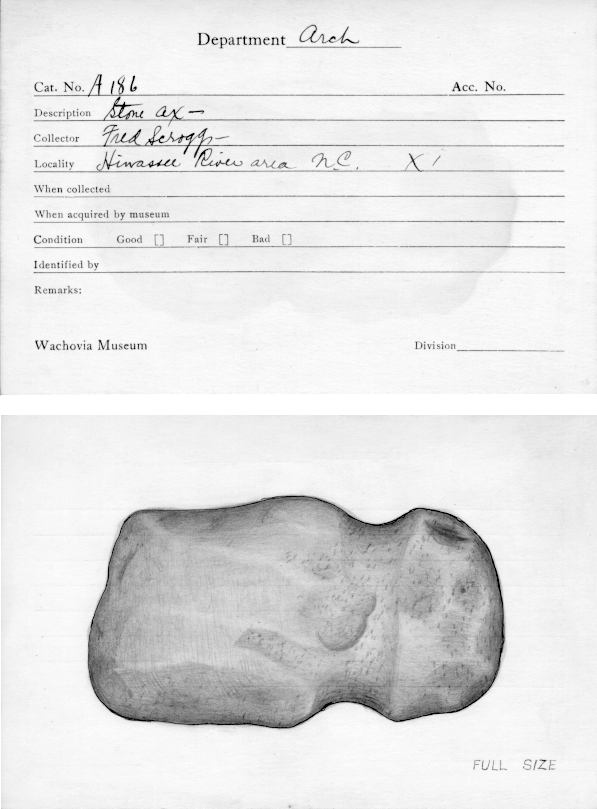 Department Arch
Cat. No. A 186 Acc. No.
Description Stone ax —
Collector Fred Scroggs —
Locality Hiwassee River area N.C. X1
When collected
When acquired by museum
Condition Good [] Fair [] Bad []
Identified by
Remarks:
Wachovia Museum Division
FULL SIZE